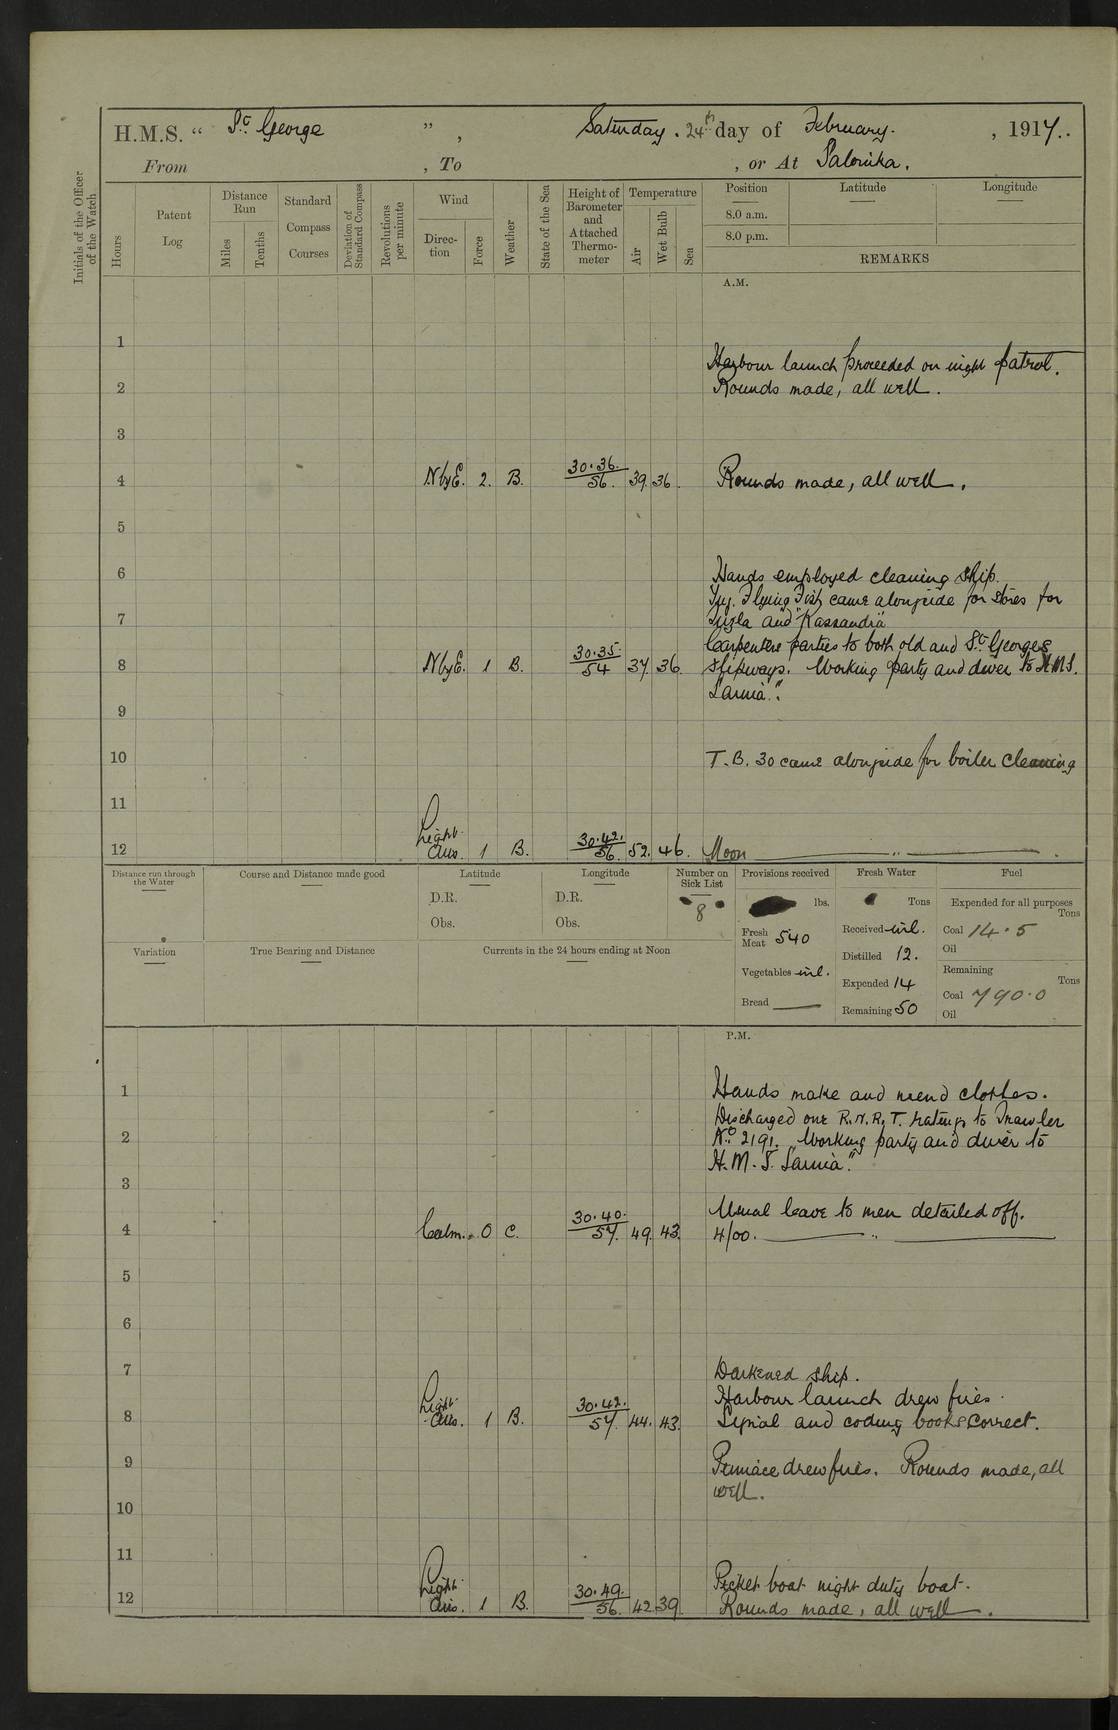 H.M.S. " St George " , Saturday . 24th day of February. , 1917..
From , To , or At Salonika.
Initials of the Officer of the Watch
Hours
Patent Log
Distance Run
Miles
Tenths
Standard Compass Courses
Deviation of Standard Compass
Revolutions per minute
Wind
Direction
Force
Weather
State of the Sea
Height of Barometer and Attached Thermometer
Temperature
Air
Wet Bulb
Sea
Position
Latitude
Longitude
8.0 a.m.
8.0 p.m.
REMARKS
A.M.
1
Harbour launch proceeded on night patrol.
2 Rounds made, all well.
3
4 N by E. 2. B. 30.36. 56. 39. 36. Rounds made, all well.
5
6 Hands employed cleaning ship.
Flying Fish came alongside for stores for
7 and "Kassandra"
Carpenters parties to both old and St Georges
8 N by E. 1 B. 30.35. 54 37. 36. slipways. Working party and diver to H.M.S.
"Sarnia".
9
10 T.B. 30 came alongside for boiler cleaning
11
12 Light Airs. 1 B. 30.42. 56. 52. 46. Noon
Distance run through the Water
Course and Distance made good
Latitude
D.R.
Obs.
Longitude
D.R.
Obs.
Number on Sick List
8
Provisions received
lbs.
Fresh Meat 540
Vegetables nil.
Bread
Fresh Water
Tons
Received nil.
Distilled 12.
Expended 14
Remaining 50
Fuel
Expended for all purposes
Tons
Coal 14.5
Oil
Remaining
Tons
Coal 790.0
Oil
Variation
True Bearing and Distance
Currents in the 24 hours ending at Noon
P.M.
1 Hands make and mend clothes.
Discharged one R.N.R.T. rating to Trawler
2 No 2191. Working party and diver to
H.M.S. "Sarnia".
3
Usual leave to men detailed off.
4 Calm. 0 C. 30.40. 57. 49. 43. 4/00.
5
6
7 Darkened ship.
Harbour launch drew fires.
8 Light Airs. 1 B. 30.42. 57. 44. 43. Signal and coding books correct.
9 Pinnace drew fires. Rounds made, all
well.
10
11
Picket boat night duty boat.
12 Light Airs. 1 B. 30.49. 56. 42 39. Rounds made, all well.